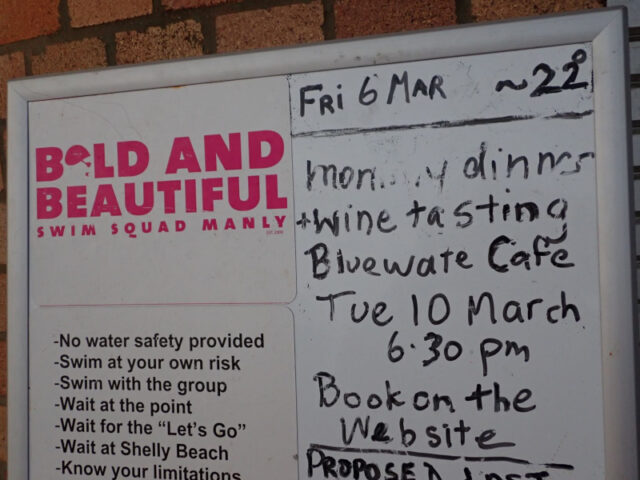 BOLD AND
BEAUTIFUL
SWIM SQUAD MANLY
-No water safety provided
-Swim at your own risk
-Swim with the group
-Wait at the point
-Wait for the "Let's Go"
-Wait at Shelly Beach
-Know your limitations
FRI 6 MAR ~22°
dinner
+wine tasting
Bluewate Café
Tue 10 March
6.30 pm
Book on the
Website
PROPOSED